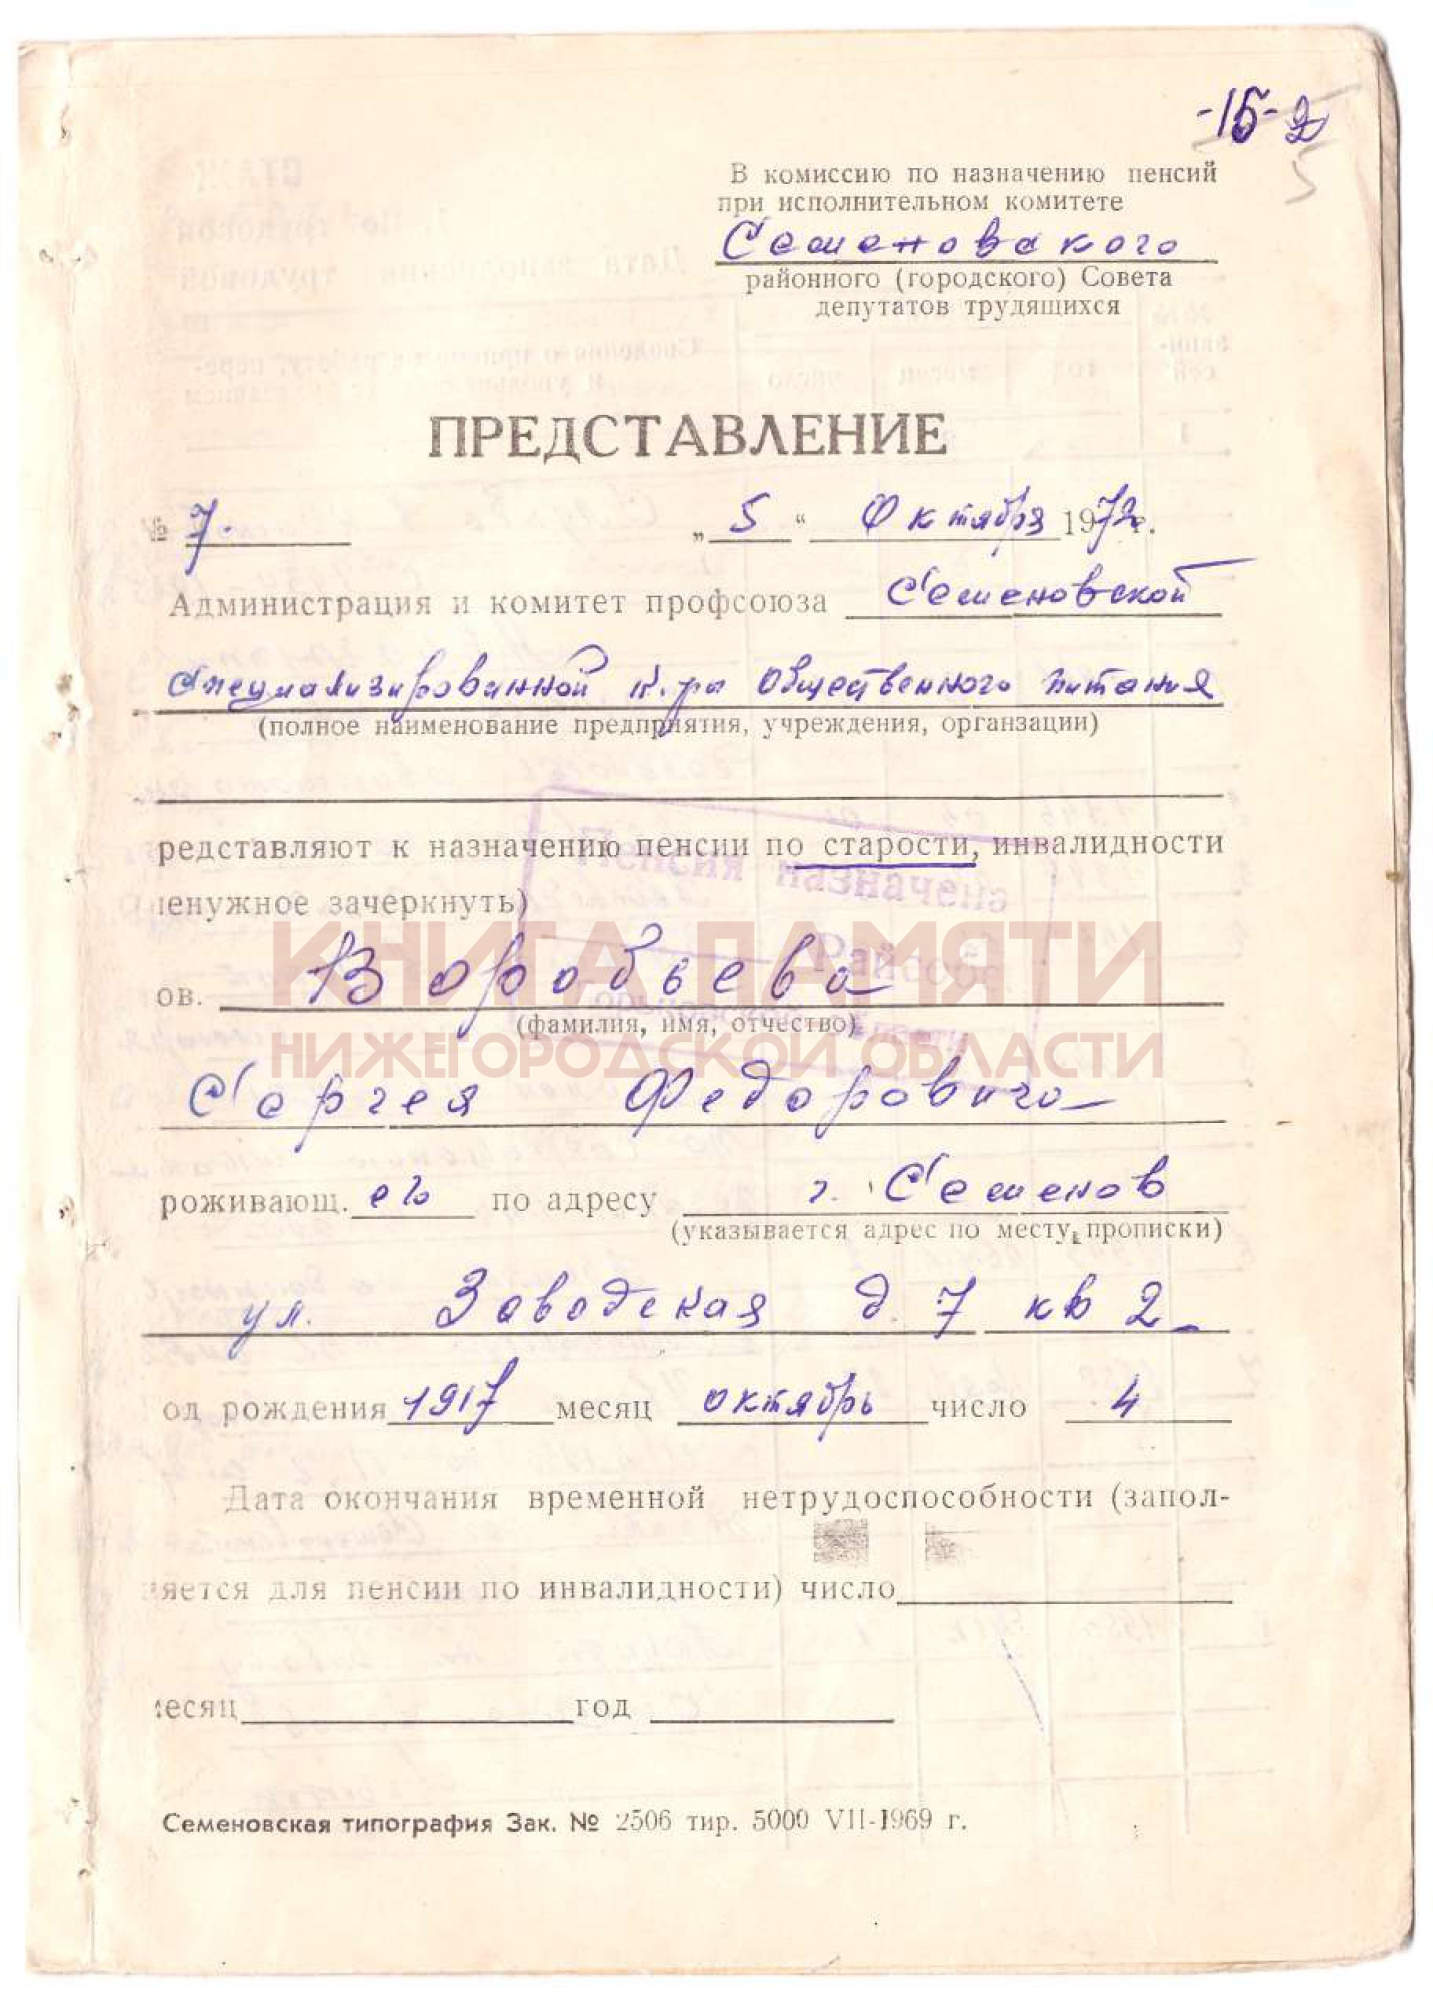 -15-
5
В комиссию по назначению пенсий
при исполнительном комитете
Семеновского
районного (городского) Совета
депутатов трудящихся
ПРЕДСТАВЛЕНИЕ
№ 7. „ 5 “ Октября 1972г.
Администрация и комитет профсоюза Семеновской
Специализированной к.ры общественного питания
(полное наименование предприятия, учреждения, органзации)
редставляют к назначению пенсии по старости, инвалидности
ненужное зачеркнуть)
Пенсия назначена
Райсобес
Горьковской области
КНИГА ПАМЯТИ
НИЖЕГОРОДСКОЙ ОБЛАСТИ
ов. Воробьева
(фамилия, имя, отчество)
Сергея Федоровича
роживающ. его по адресу г. Семенов
(указывается адрес по месту прописки)
ул. Заводская д. 7 кв 2
од рождения 1917 месяц октябрь число 4
Дата окончания временной нетрудоспособности (запол-
няется для пенсии по инвалидности) число
месяц год
Семеновская типография Зак. № 2506 тир. 5000 VII-1969 г.